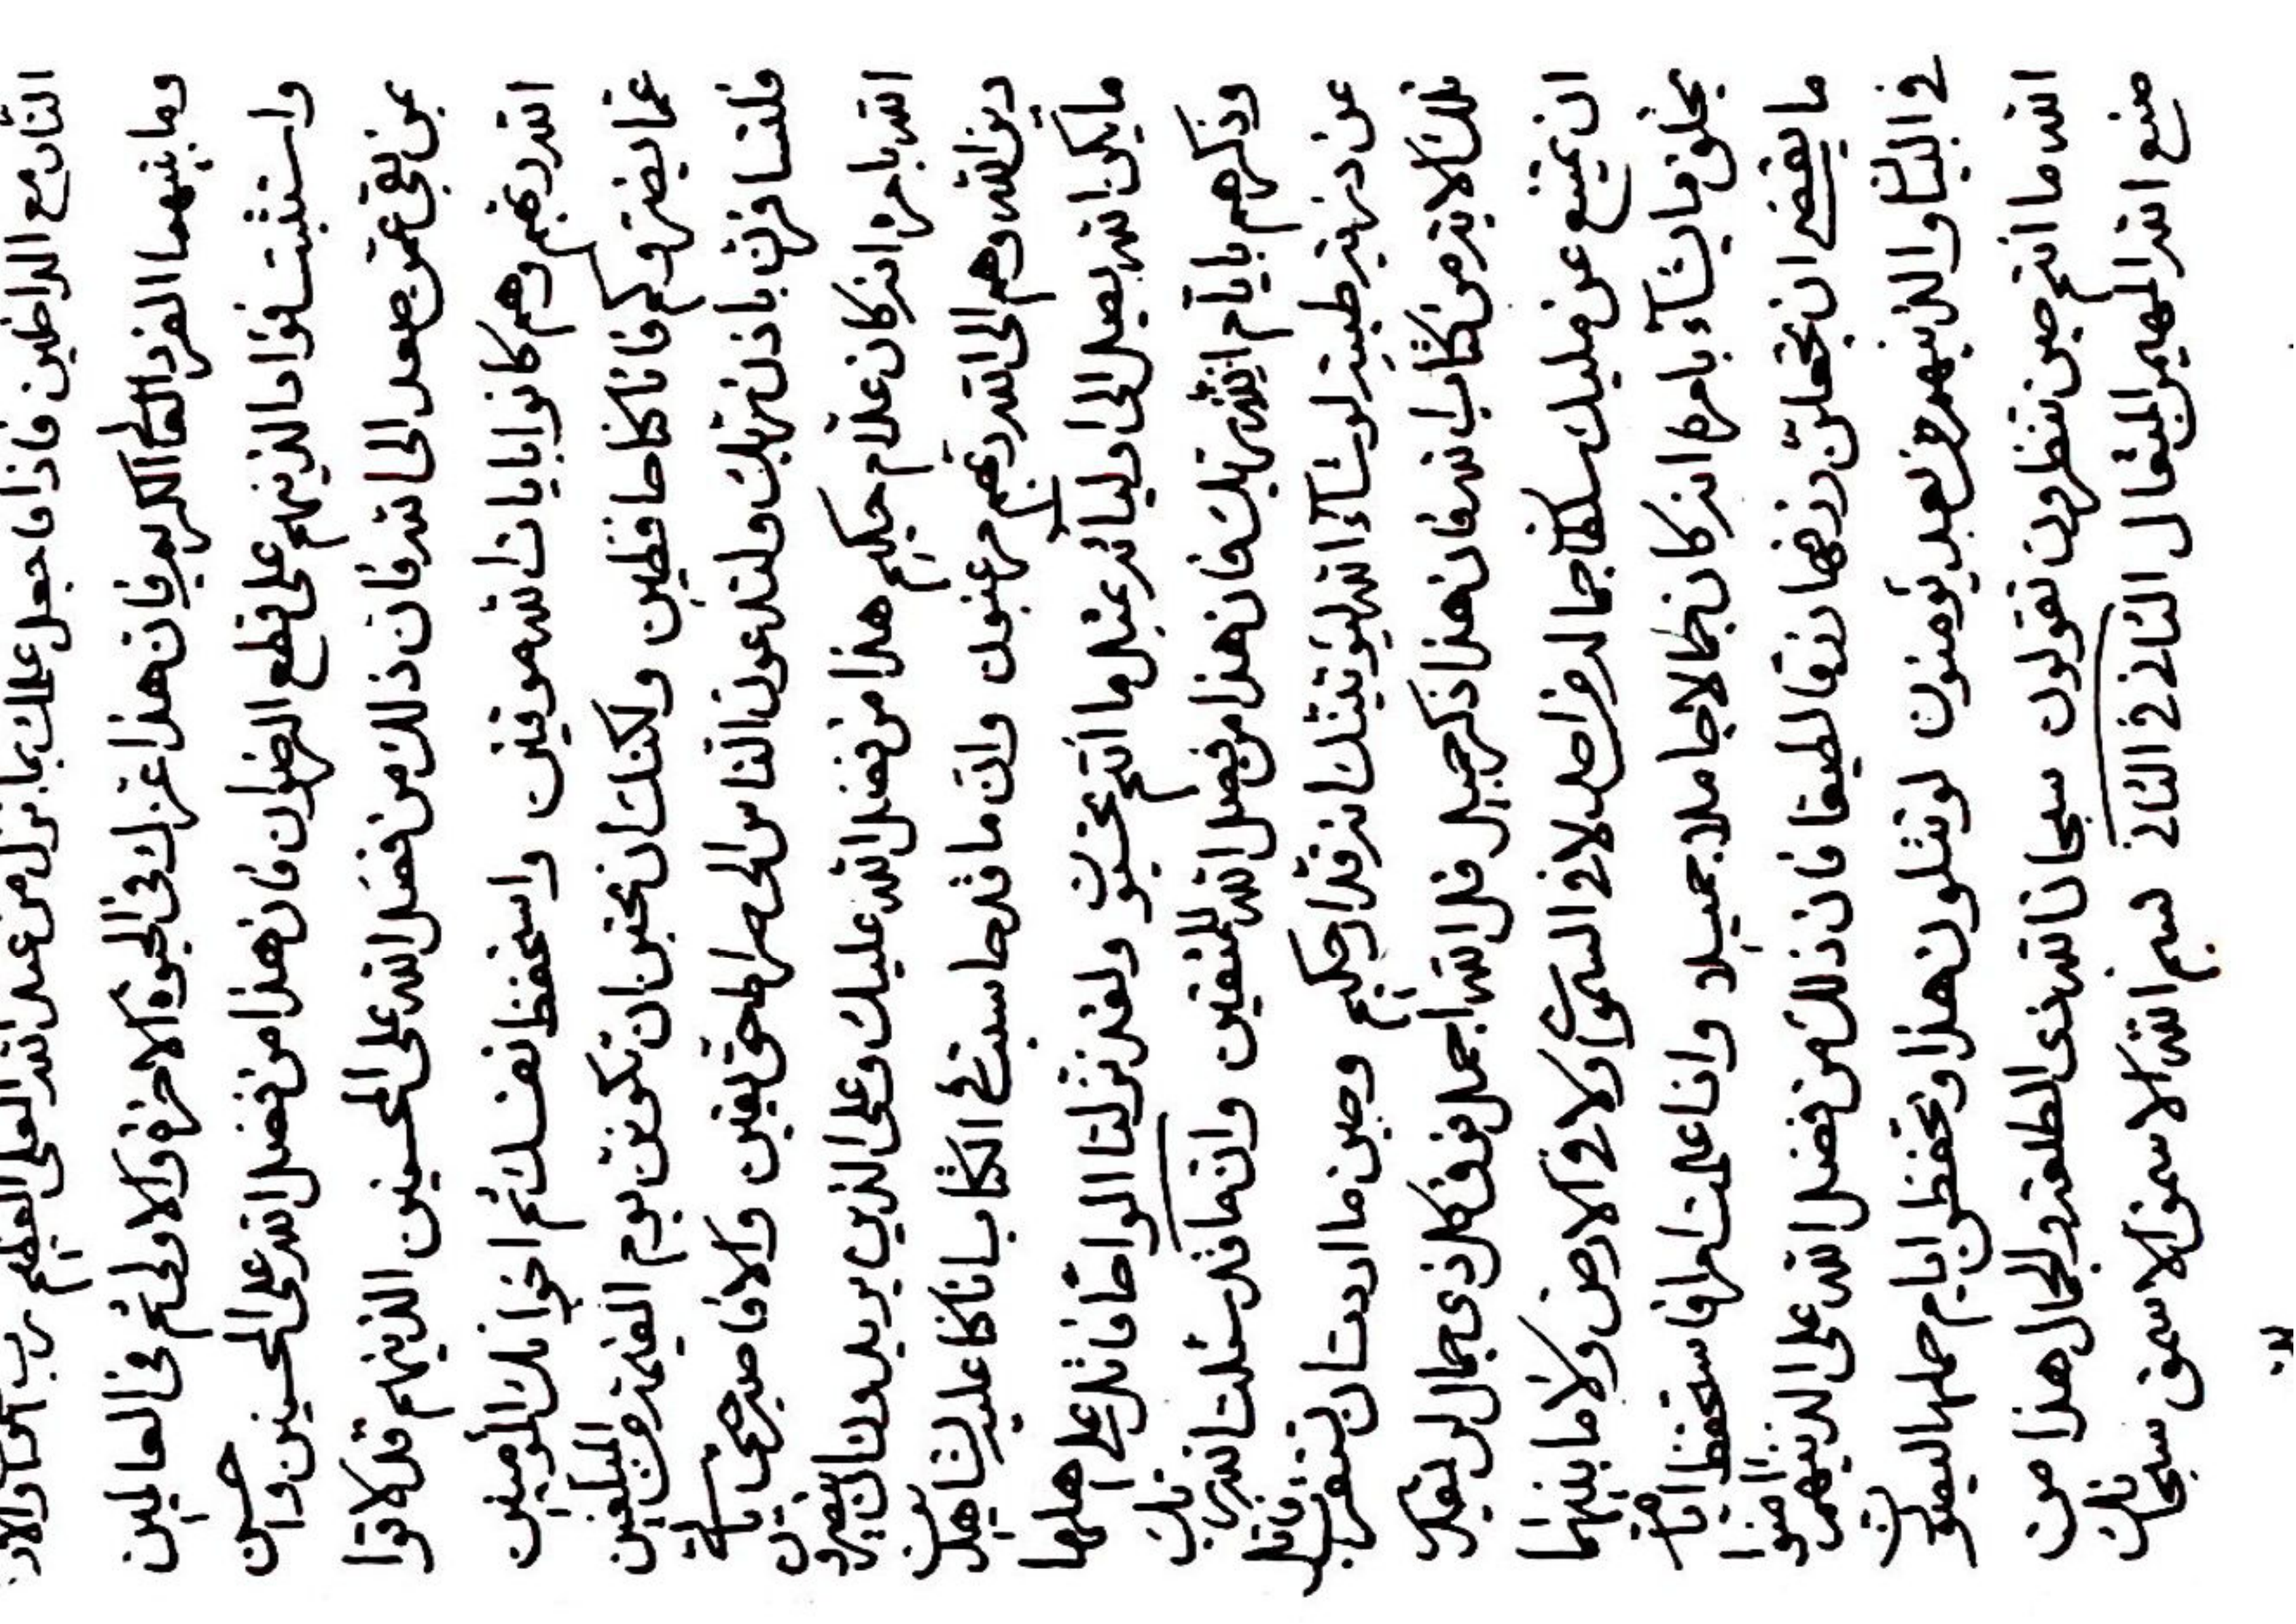 النار مع الداخلين فاذا ما جعل عملك بما نزل من عند الله العلي العظيم رب السموات والار
وما بينهما الفرد العالم الكريم فان هذا اعز لك في الحيوة الاخرة والاولى ثم في العالمين
واستثبت فؤاد الذينهم على قطع الرضوان فان هذا من فضل الله على المحسنين وان
من نقى عمره صعد الى الله فان ذلك من فضل الله على المحسنين الذينهم قد لاقوا
الله ربهم وهم كانوا بايات الله موقنين واستحفظ نفسك ثم اخوانك المؤمنين
عما يضروكم فانا كنا حافظين ولكنك ان تحبن ان تكونن يوم القيمة من المبلغين
فلتسافرن باذن ربك ولتدعون الناس الى صراط حق يقين والا فاصبر حتى ياتي
الله بامره انه كان علام حكيم هذا من فضل الله عليك وعلى الذين يريدون ان ينصرون
دين الله وهم الى الله ربهم مرغبون وان ما قد حاسبت في الكتاب انا كنا عليه لشاهدين
ما يكن الله يصل الى اوليائه عند ما انتم تحبون ولقد نزلنا الواحا فاتل على اهلها
وذكرهم بايام الله ربك فان هذا من فضل الله للمتقين وان ما قد سئلت الله ربك
عن ذرية طيبة لو شاء الله ليؤتينك انه قدار حكيم وحين ما اردت ان تقرب فاتل
تلك الاية من كتاب الله فان هذا ذكر جميل قل الله اجمل فوق كل ذي جمال لن يقدر
ان يمتنع عن مليك سلطان جماله من احد لا في السموات ولا في الارض ولا ما بينهما
يخلق ما يشاء بامره انه كان جمالا جاملا جميلا وانا علمت امرا فاستحفظ اياما
ما يقضي ان تجعلن رزقها رزقا لطيفا فان ذلك من فضل الله على الذينهم امنوا
في البيان والذينهم من بعد يؤمنون لو تتلون هذا وتحفظن ايام حملها ليعيونك
الله ما انتم حين تنظرون تقولون سبحان الله ذي الطلعة والجمال هذا من
صنع الله المهيمن المتعال الثاني في الثاني بسم الله الاسمق الاسمق سبحانك